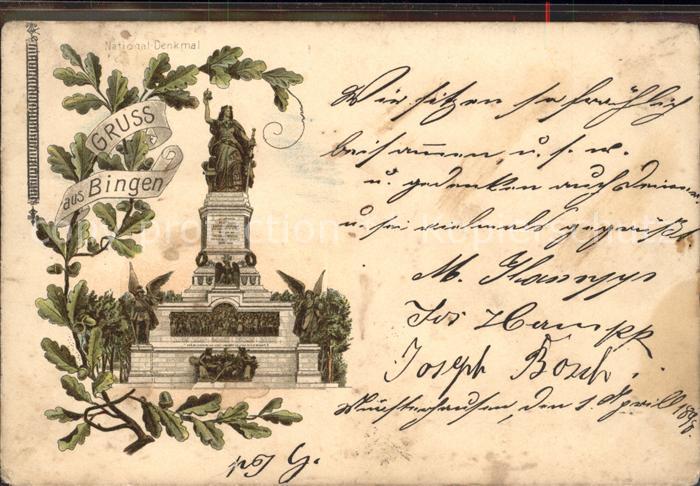 National-Denkmal
GRUSS
aus Bingen
Wir sitzen so fröhlich
beisammen, u. s. w.
u. gedenken auch deiner
u. sei vielmals gegrüßt
M.
Jos Hampp
Joseph Bosch.
den 1. April 189